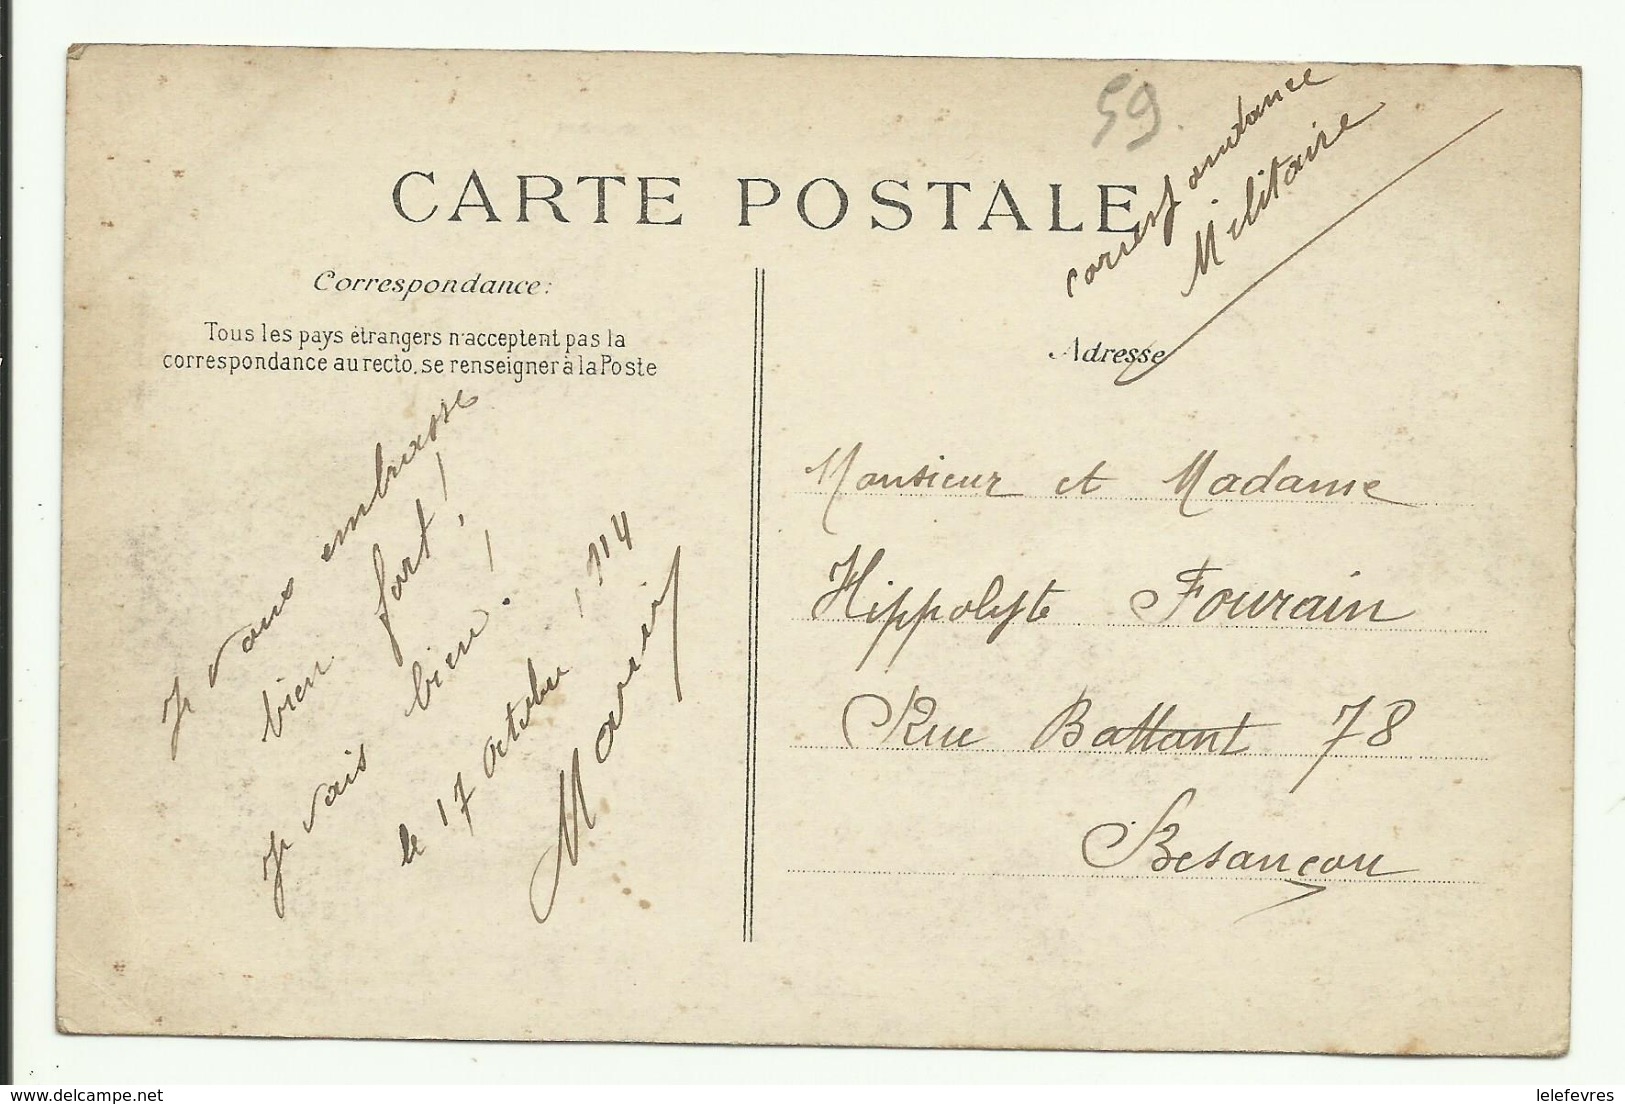 59.
correspondance
Militaire
CARTE POSTALE
Correspondance:
Tous les pays étrangers n'acceptent pas la
correspondance au recto, se renseigner à la Poste
Adresse
Je vous embrasse
bien fort!
Je vais bien!
le 17 octobre 114
Monsieur et Madame
Hippolyte Fourain
Rue Battant 78
Besançon
lelefevres